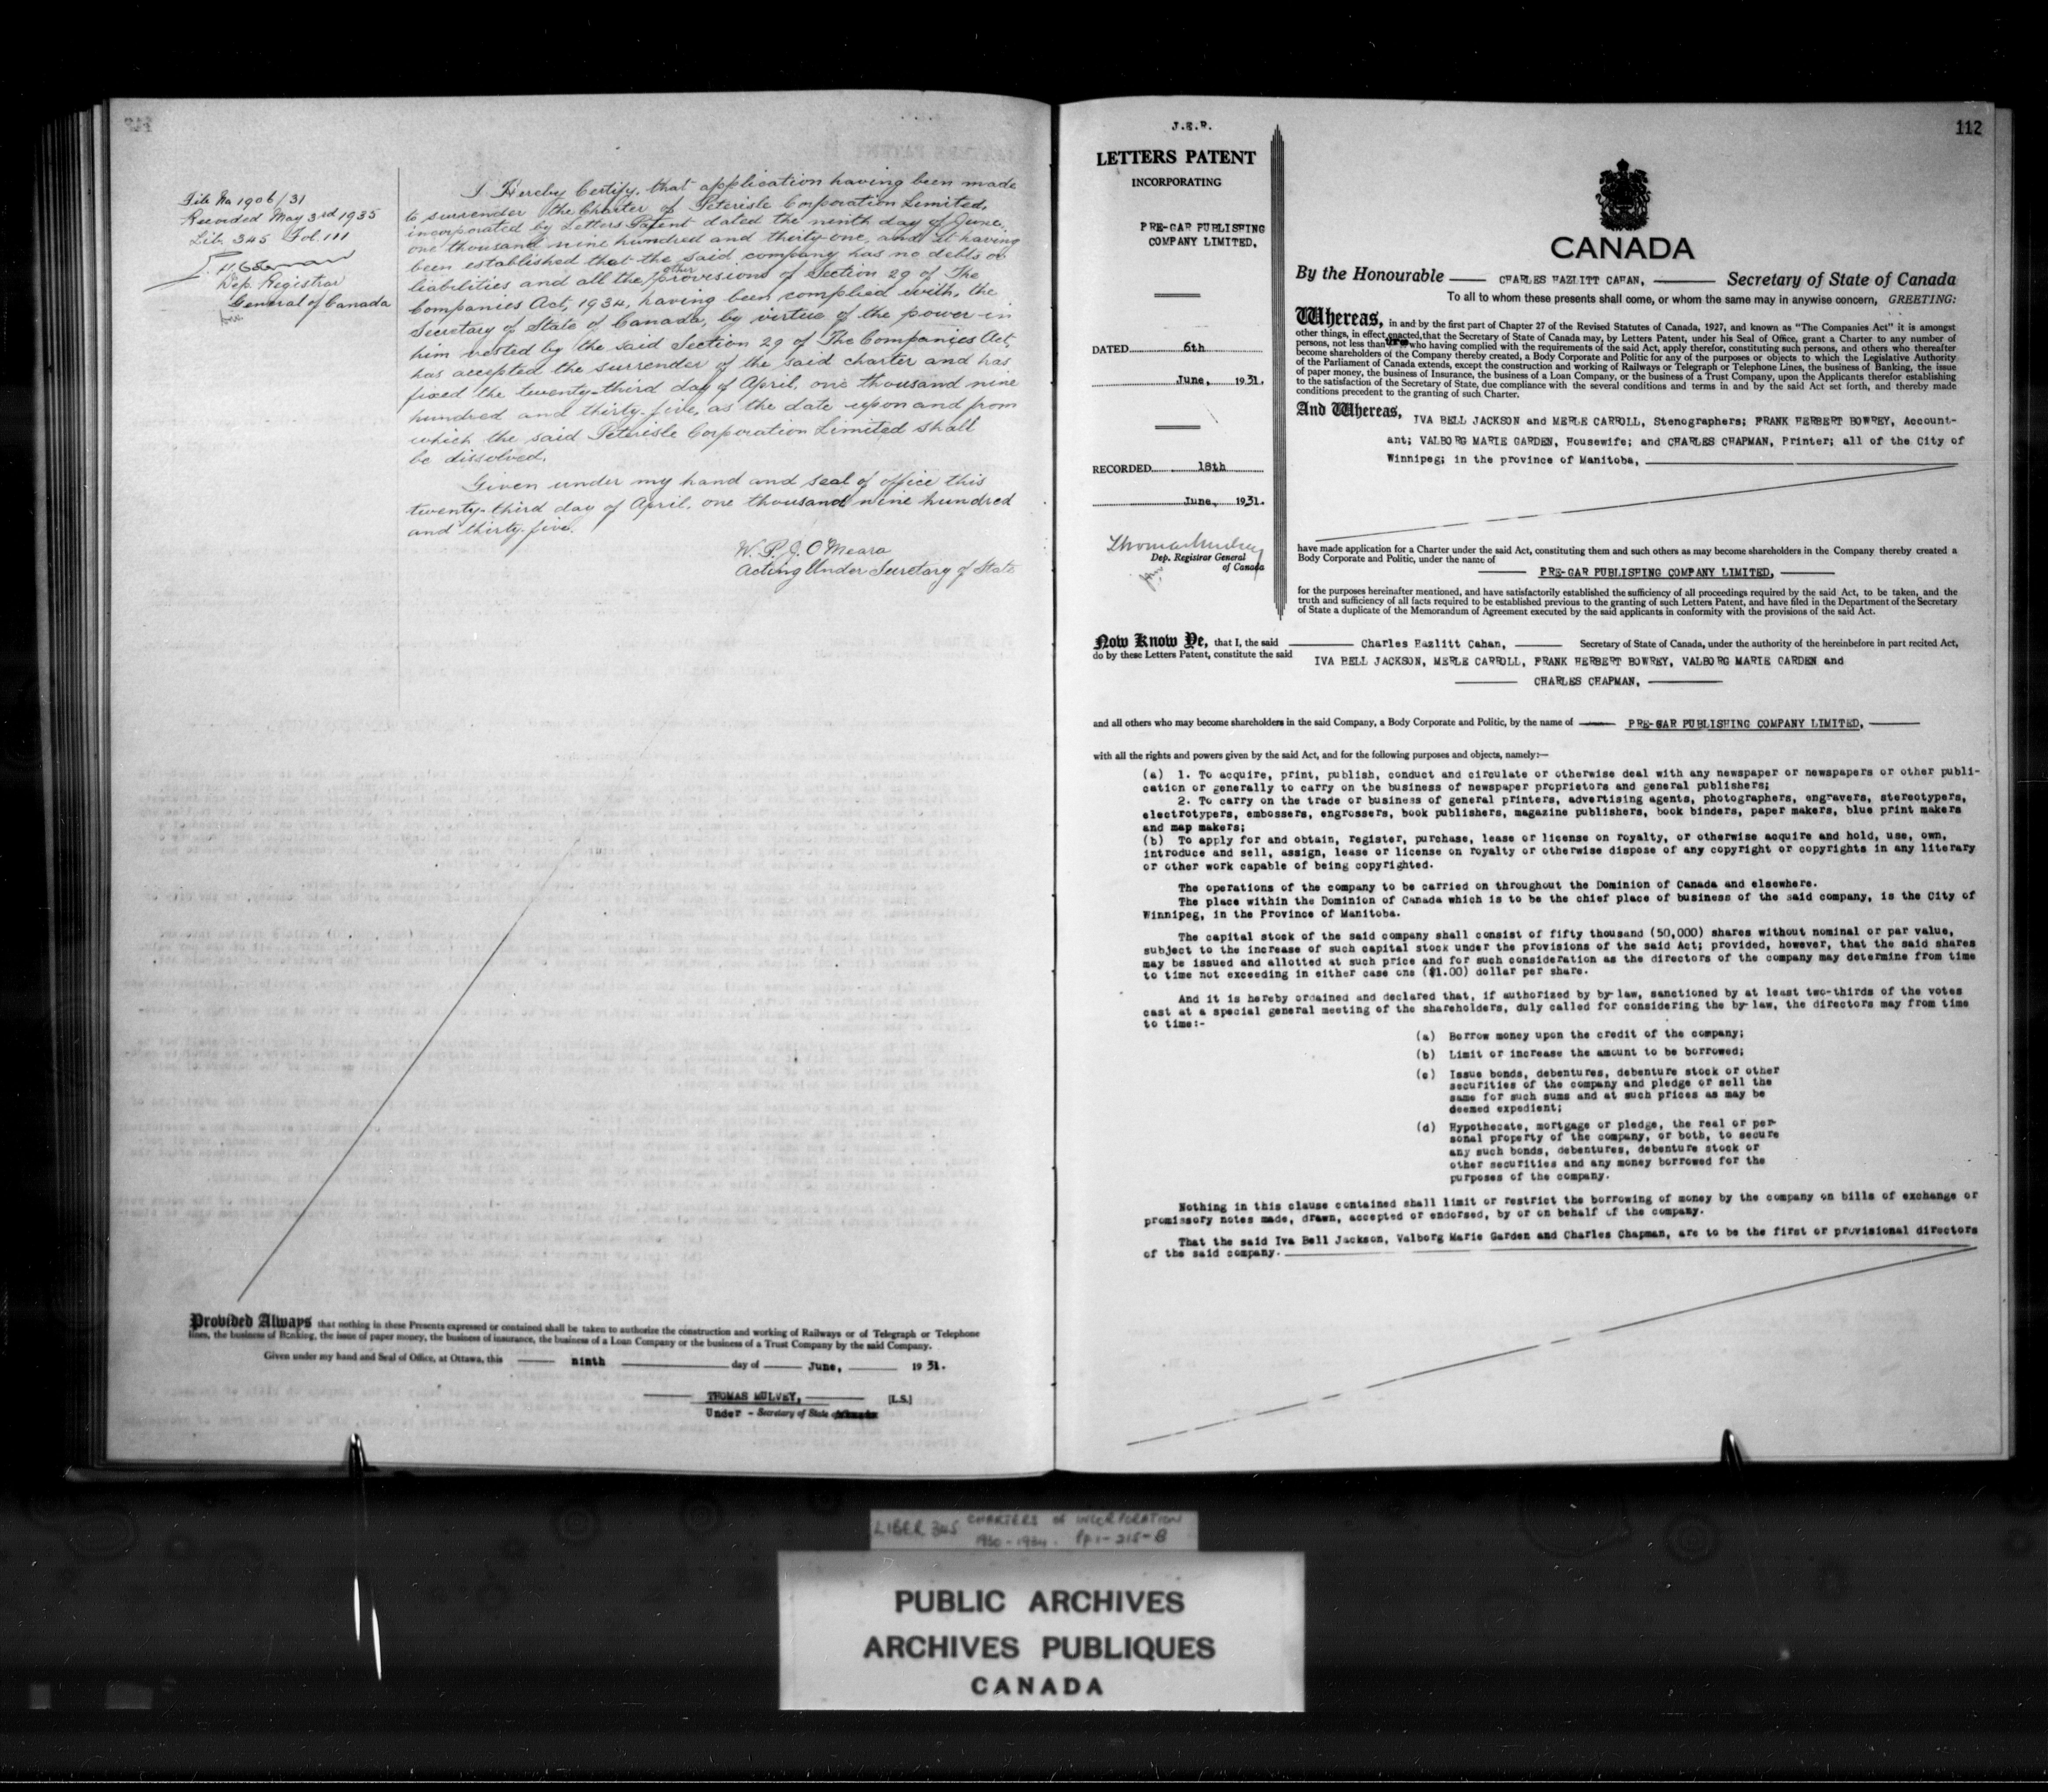 File No 1906/31
Recorded May 3rd 1935
Lib. 345 Fol. 111
Dep. Registrar
General of Canada
I Hereby Certify, that application having been made
to surrender the Charter of Peterisle Corporation Limited,
incorporated by Letters Patent dated the ninth day of June,
one thousand nine hundred and thirty-one, and it having
been established that the said company has no debts or
liabilities and all the other provisions of Section 29 of The
Companies Act, 1934, having been complied with, the
Secretary of State of Canada, by virtue of the power in
him vested by the said Section 29 of The Companies Act,
has accepted the surrender of the said charter and has
fixed the twenty-third day of April, one thousand nine
hundred and thirty-five, as the date upon and from
which the said Peterisle Corporation Limited shall
be dissolved.
Given under my hand and seal of office this
twenty-third day of April, one thousand nine hundred
and thirty-five.
W. P. J. O'Meara
Acting Under Secretary of State
Provided Always that nothing in these Presents expressed or contained shall be taken to authorize the construction and working of Railways or of Telegraph or Telephone
lines, the business of Banking, the issue of paper money, the business of insurance, the business of a Loan Company or the business of a Trust Company by the said Company.
Given under my hand and Seal of Office, at Ottawa, this ninth day of June, 1931.
THOMAS MULVEY, [L.S.]
Under - Secretary of State
J.E.R.
LETTERS PATENT
INCORPORATING
PRE-GAR PUBLISHING
COMPANY LIMITED,
DATED 6th
June, 1931.
RECORDED 18th
June, 1931.
Thomas Mulvey
Dep. Registrar General
of Canada
112
CANADA
By the Honourable CHARLES HAZLITT CAHAN, Secretary of State of Canada
To all to whom these presents shall come, or whom the same may in anywise concern, GREETING:
Whereas, in and by the first part of Chapter 27 of the Revised Statutes of Canada, 1927, and known as "The Companies Act" it is amongst
other things, in effect enacted, that the Secretary of State of Canada may, by Letters Patent, under his Seal of Office, grant a Charter to any number of
persons, not less than who having complied with the requirements of the said Act, apply therefor, constituting such persons, and others who thereafter
become shareholders of the Company thereby created, a Body Corporate and Politic for any of the purposes or objects to which the Legislative Authority
of the Parliament of Canada extends, except the construction and working of Railways or Telegraph or Telephone Lines, the business of Banking, the issue
of paper money, the business of Insurance, the business of a Loan Company, or the business of a Trust Company, upon the Applicants therefor establishing
to the satisfaction of the Secretary of State, due compliance with the several conditions and terms in and by the said Act set forth, and thereby made
conditions precedent to the granting of such Charter.
And Whereas, IVA BELL JACKSON and MERLE CARROLL, Stenographers; FRANK HERBERT BOWREY, Account-
ant; VALBORG MARIE GARDEN, Housewife; and CHARLES CHAPMAN, Printer; all of the City of
Winnipeg; in the province of Manitoba,
have made application for a Charter under the said Act, constituting them and such others as may become shareholders in the Company thereby created a
Body Corporate and Politic, under the name of
PRE-GAR PUBLISHING COMPANY LIMITED,
for the purposes hereinafter mentioned, and have satisfactorily established the sufficiency of all proceedings required by the said Act, to be taken, and the
truth and sufficiency of all facts required to be established previous to the granting of such Letters Patent, and have filed in the Department of the Secretary
of State a duplicate of the Memorandum of Agreement executed by the said applicants in conformity with the provisions of the said Act.
Now Know Ye, that I, the said Charles Hazlitt Cahan, Secretary of State of Canada, under the authority of the hereinbefore in part recited Act,
do by these Letters Patent, constitute the said IVA BELL JACKSON, MERLE CARROLL, FRANK HERBERT BOWREY, VALBORG MARIE GARDEN and
CHARLES CHAPMAN,
and all others who may become shareholders in the said Company, a Body Corporate and Politic, by the name of PRE-GAR PUBLISHING COMPANY LIMITED,
with all the rights and powers given by the said Act, and for the following purposes and objects, namely:—
(a) 1. To acquire, print, publish, conduct and circulate or otherwise deal with any newspaper or newspapers or other publi-
cation or generally to carry on the business of newspaper proprietors and general publishers;
2. To carry on the trade or business of general printers, advertising agents, photographers, engravers, stereotypers,
electrotypers, embossers, engrossers, book publishers, magazine publishers, book binders, paper makers, blue print makers
and map makers;
(b) To apply for and obtain, register, purchase, lease or license on royalty, or otherwise acquire and hold, use, own,
introduce and sell, assign, lease or license on royalty or otherwise dispose of any copyright or copyrights in any literary
or other work capable of being copyrighted.
The operations of the company to be carried on throughout the Dominion of Canada and elsewhere.
The place within the Dominion of Canada which is to be the chief place of business of the said company, is the City of
Winnipeg, in the Province of Manitoba.
The capital stock of the said company shall consist of fifty thousand (50,000) shares without nominal or par value,
subject to the increase of such capital stock under the provisions of the said Act; provided, however, that the said shares
may be issued and allotted at such price and for such consideration as the directors of the company may determine from time
to time not exceeding in either case one ($1.00) dollar per share.
And it is hereby ordained and declared that, if authorized by by-law, sanctioned by at least two-thirds of the votes
cast at a special general meeting of the shareholders, duly called for considering the by-law, the directors may from time
to time:-
(a) Borrow money upon the credit of the company;
(b) Limit or increase the amount to be borrowed;
(c) Issue bonds, debentures, debenture stock or other
securities of the company and pledge or sell the
same for such sums and at such prices as may be
deemed expedient;
(d) Hypothecate, mortgage or pledge, the real or per-
sonal property of the company, or both, to secure
any such bonds, debentures, debenture stock or
other securities and any money borrowed for the
purposes of the company.
Nothing in this clause contained shall limit or restrict the borrowing of money by the company on bills of exchange or
promissory notes made, drawn, accepted or endorsed, by or on behalf of the company.
That the said Iva Bell Jackson, Valborg Marie Garden and Charles Chapman, are to be the first or provisional directors
of the said company.
LIBER 345 CHARTERS of INCORPORATION
1930-1934. Pp. 1-215-B
PUBLIC ARCHIVES
ARCHIVES PUBLIQUES
CANADA